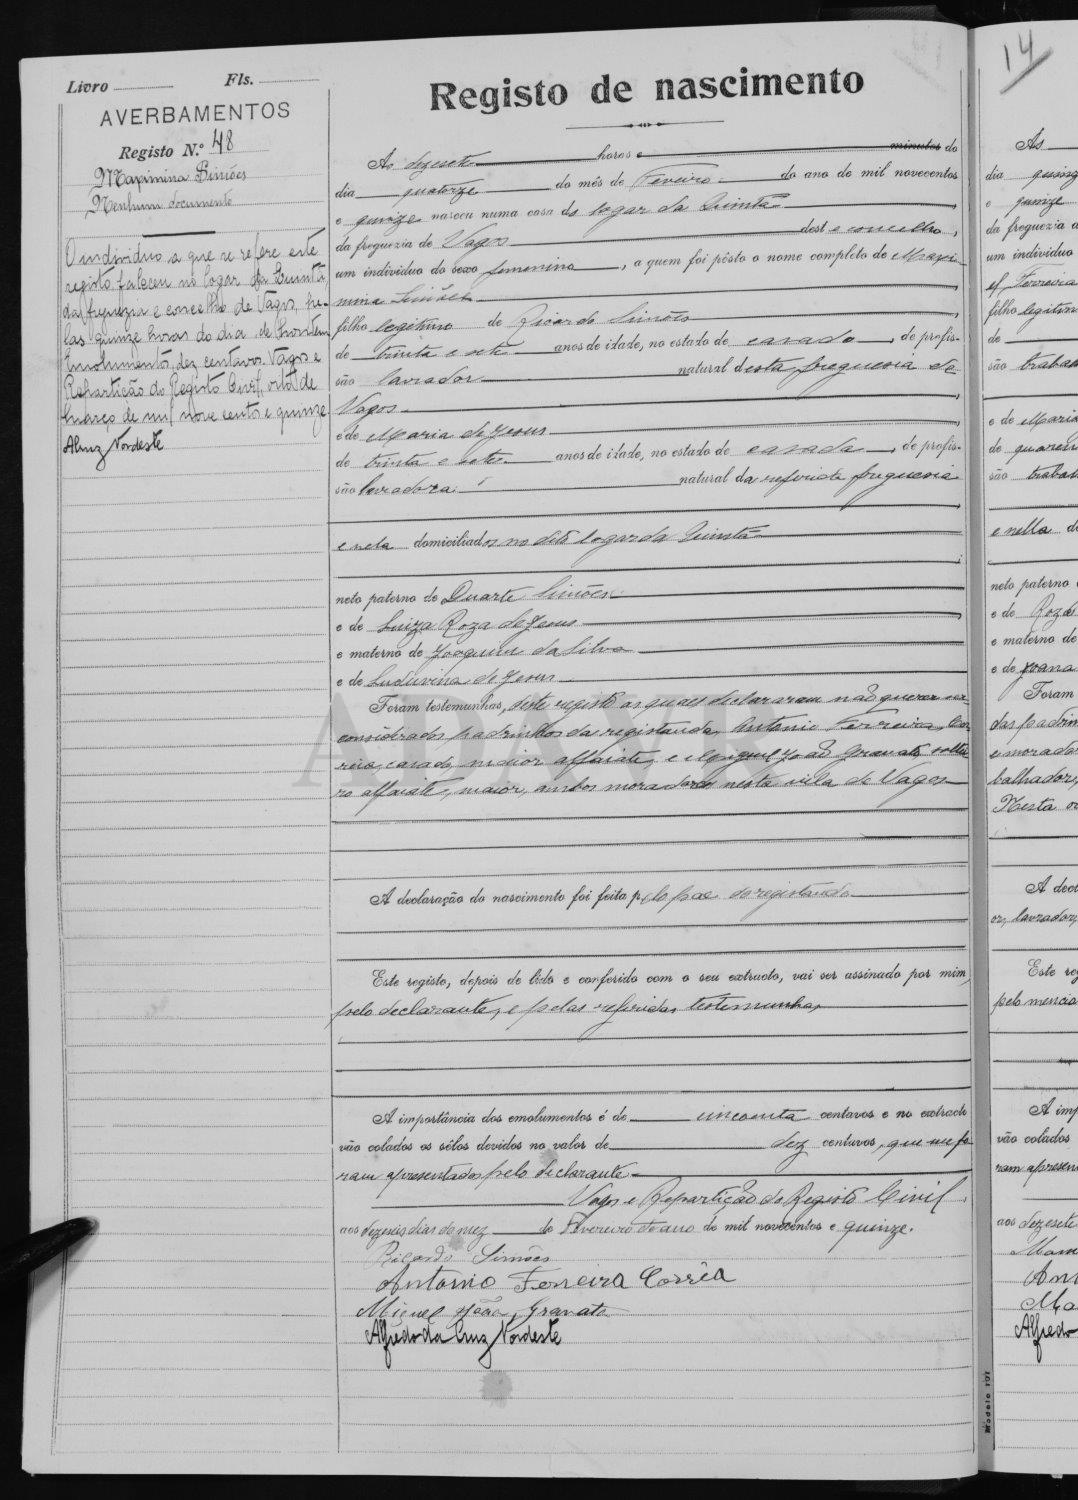 Livro Fls.
AVERBAMENTOS
Registo N.º 48
Maximina Simões
Nenhum documento
O individuo a que se refere este
registo, faleceu no logar da Quintã,
da freguezia e concelho de Vagos, pe-
las quinze horas do dia de hontem
Emolumentos, dez centavos. Vagos e
Repartição do Registo Civil, oito de
Março de mil nove centos e quinze
A Cruz Nordeste
Registo de nascimento
Ás dezesete horas e minutos do
dia quatorze do mês de Fevreiro do ano de mil novecentos
e quinze nasceu numa casa do logar da Quintã
da freguezia de Vagos deste concelho,
um individuo do sexo femenino, a quem foi pôsto o nome completo de Maxi-
mina Simões
filho legitimo de Ricardo Simões
de trinta e sete anos de idade, no estado de casado, de profis-
são lavrador natural desta freguesia de
Vagos
e de Maria de Jesus
de trinta e sete anos de idade, no estado de casada, de profis-
são lavradora natural da referida freguesia
e nela domiciliados no dito logar da Quintã
neto paterno de Duarte Simões
e de Luiza Roza de Jesus
e materno de Joaquim da Silva
e de Luduvina de Jesus
Foram testemunhas, deste registo as quaes declararam não querer ser
considerados padrinhos da registanda, Antonio Ferreira Cor-
rêia, casado, maior alfaiate, e Miguel João Granato, soltei
ro alfaiate, maior, ambos moradores nesta vila de Vagos
A declaração do nascimento foi feita pelo pae da registanda
Este registo, depois de lido e conferido com o seu extracto, vai ser assinado por mim,
pelo declarante, e pelas referidas testemunhas
A importância dos emolumentos é de cincoenta centavos e no extracto
vão colados os sêlos devidos no valor de dez centavos, que me fo-
ram apresentados pelo declarante
Vagos e Repartição do Registo Civil
aos dezeseis dias do mez de Fevereiro do ano de mil novecentos e quinze.
Ricardo Simões
Antonio Ferreira Corrêa
Miguel João Granato
Alfredo da Cruz Nordeste
ADAVR
Modelo 101
14
Ás
dia quinz
e quinze
da freguezia d
um individuo
ef Ferreira
filho legitim
de
são trabal
e de Maria
de quaren
são trabal
e nella d
neto paterno
e de Roza
e materno de
e de Joana
Foram
das padrin
e morador
balhador,
Nesta
A decl
or, lavrador,
Este reg
pelo mencio
A imp
vão colados
ram apresen
aos dezesete
Man
Ant
Ma
Alfredo